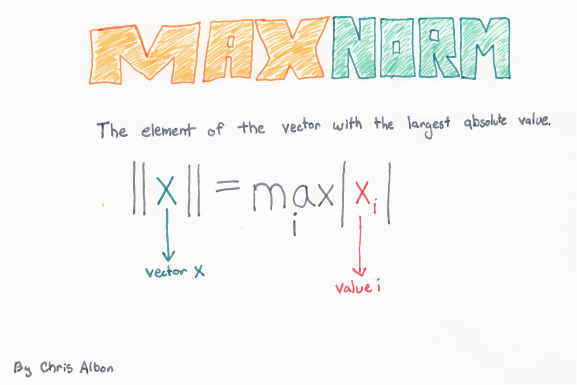 MAX NORM
The element of the vector with the largest absolute value.
||x|| = max|xᵢ|
i
vector X
value i
By Chris Albon